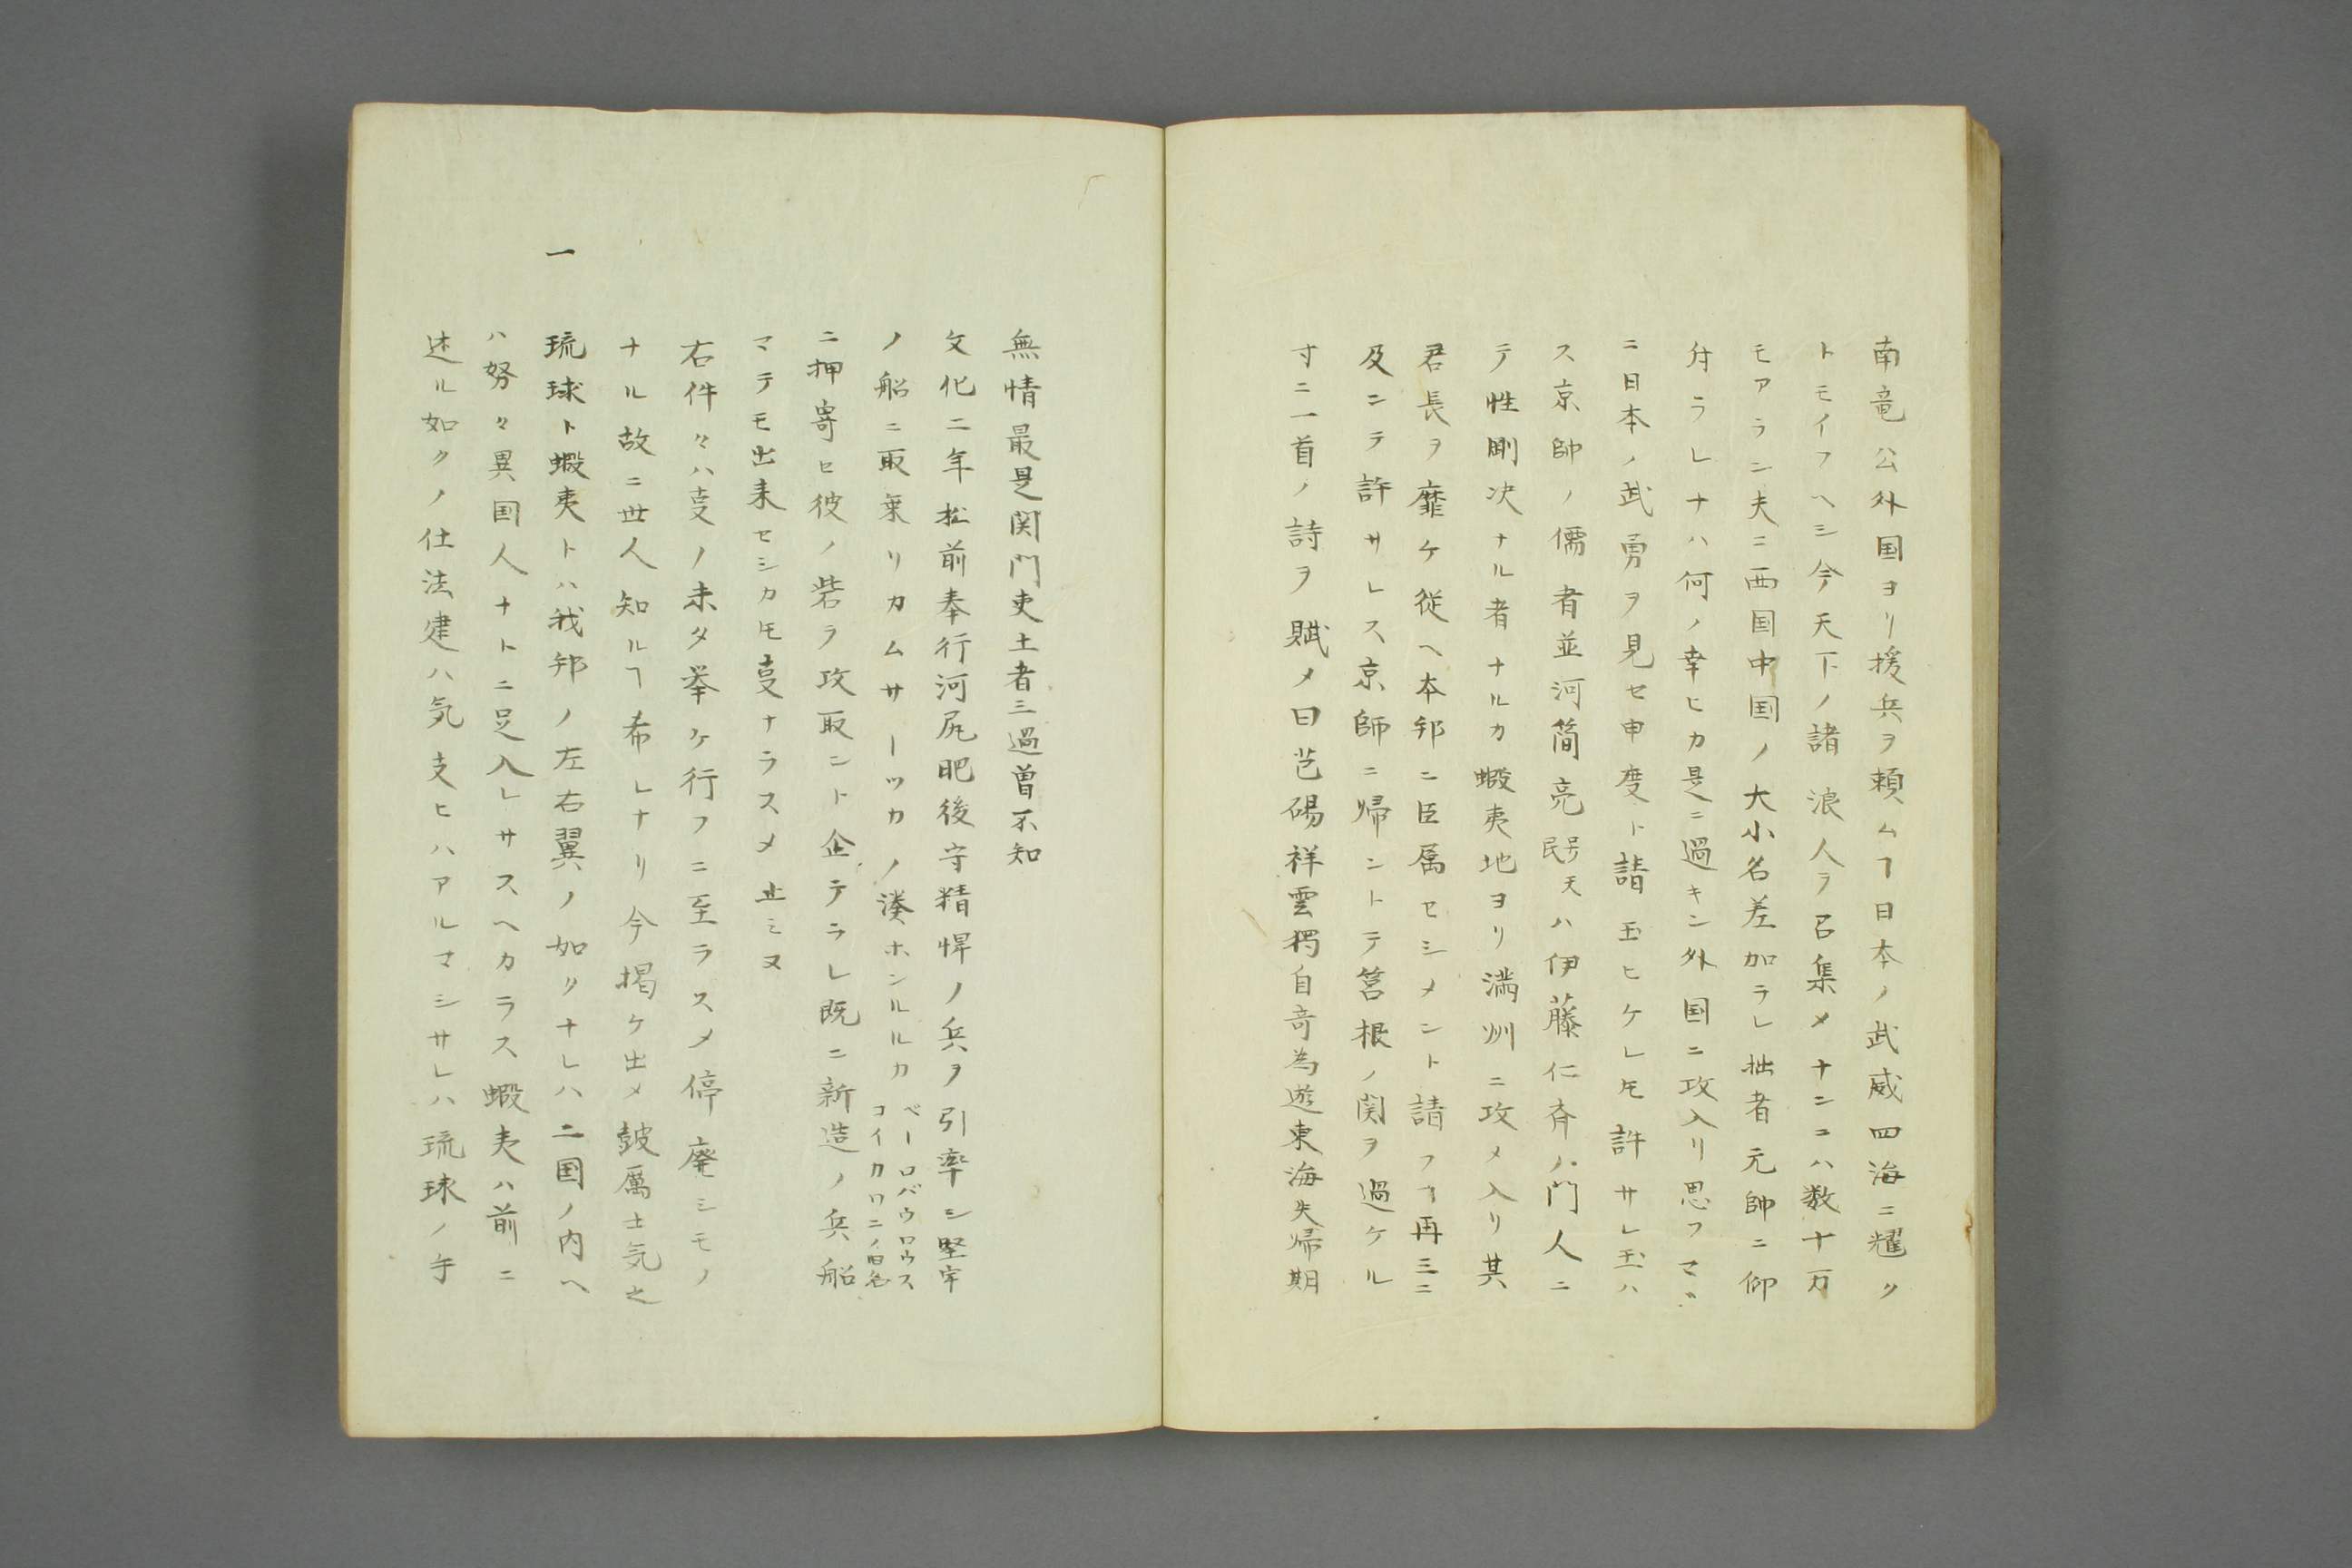 南竜公外国ヨリ援兵ヲ頼ムヿ日本ノ武威四海ニ耀ク
トモイフヘシ今天下ノ諸浪人ヲ召集メナンニハ数十万
モアラン夫ニ西国中国ノ大小名差加ラレ拙者元帥ニ仰
付ラレナハ何ノ幸ヒカ是ニ過キン外国ニ攻入リ思フマヽ
ニ日本ノ武勇ヲ見セ申度ト請玉ヒケレ𪜈許サレ玉ハ
ス京師ノ儒者並河簡亮号天民ハ伊藤仁斉ノ門人ニ
テ性剛决ナル者ナルカ蝦夷地ヨリ満洲ニ攻メ入リ其
君長ヲ靡ケ従ヘ本邦ニ臣属セシメント請フヿ再三ニ
及ンテ許サレス京師ニ帰ントテ筥根ノ関ヲ過ケル
寸ニ一首ノ詩ヲ賦メ曰芒碭祥雲独自奇為遊東海失帰期
無情最是関門吏土者三過曽不知
文化二年松前奉行河尻肥後守精悍ノ兵ヲ引率シ堅牢
ノ船ニ取乗リカムサーツカノ湊ホンルルカ
ベーロバウロウス
コイカワニノ旧名
ニ押寄セ彼ノ砦ヲ攻取ント企テラレ既ニ新造ノ兵船
マテモ出来セシカ𪜈叓ナラスメ止ミヌ
右件々ハ叓ノ未タ挙ケ行フニ至ラスメ停廃シモノ
ナル故ニ世人知ルヿ希レナリ今掲ケ出メ皷厲士気之
一 琉球ト蝦夷トハ我邦ノ左右翼ノ如クナレハ二国ノ内ヘ
ハ努々異国人ナトニ足入レサスヘカラス蝦夷ハ前ニ
述ル如クノ仕法建ハ気支ヒハアルマシサレハ琉球ノ手